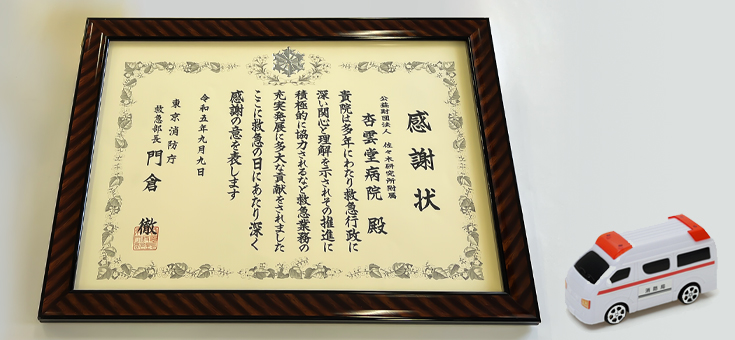 感謝状
公益財団法人 佐々木研究所附属
杏雲堂病院 殿
貴院は多年にわたり救急行政に
深い関心と理解を示されその推進に
積極的に協力されるなど救急業務の
充実発展に多大な貢献をされました
ここに救急の日にあたり深く
感謝の意を表します
令和五年九月九日
東京消防庁
救急部長 門倉 徹
消防局